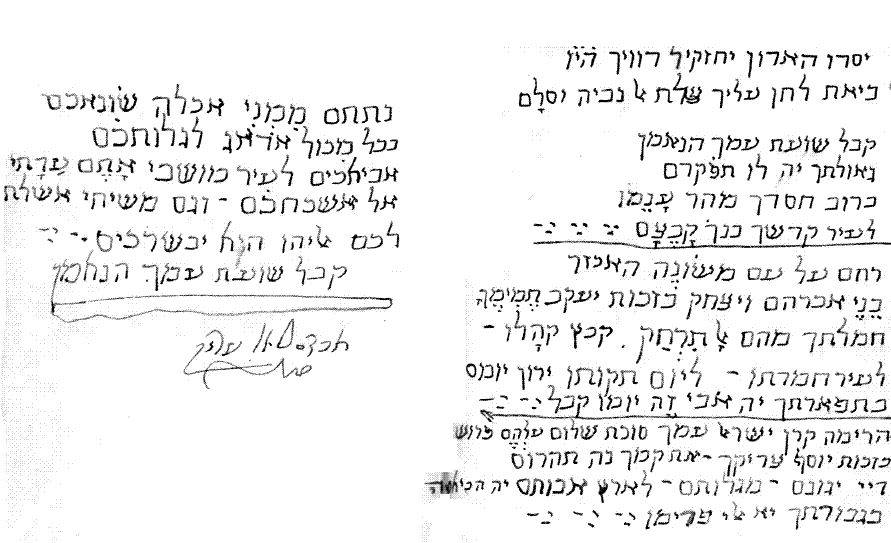 יסדו הארון יחזקיל דוויך היו
ביאת לחן עליך עלת נביה וסלם
קבל שועת עמך הנאמן
גאולתך יה לו תפקדם
ברוב חסדך מהר ענמו
לעיר קדשך בנך קבצם
רחם על עם משונה האכזר
בני אברהם ויצחק בזכות יעקב תמימך
חמלתך מהם אל תרחק . קבץ קהלו -
לעיר חמדתו - ליום תקותו ירון יומם
בתפארתך יה אבי זה יומו קבל
הרימה קרן ישראל עמך סוכת שלום עליהם פרוש
בזכות יוסף צדיקך - את קמך נה תהרוס
דיי יגונם - מגלותם - לארץ אבותם יה
בגבורתך יא אלי פדימן
נתתם מכוני אכלה שונאכם
בכל מכול אדאג לגלותכם
אביאכים לעיר מושבי אתם עדתי
אל אשכחכם - וגם משיחי אשלח
לכם אליהו הוא יבשרכים
קבל שועת עמך הנאמן